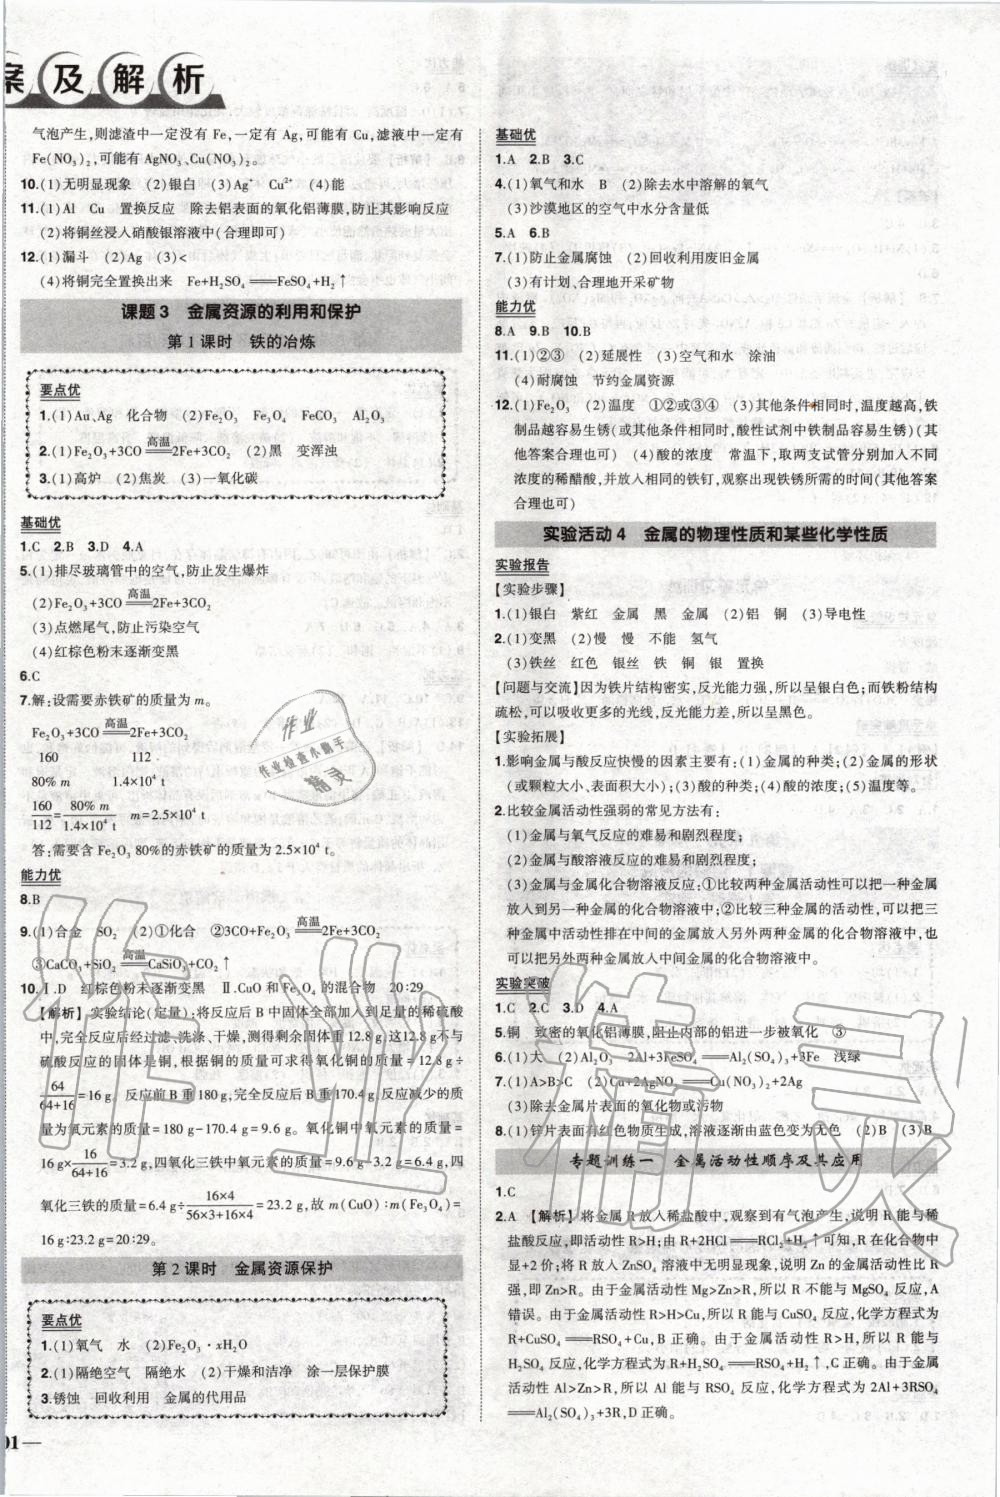 案及解析
气泡产生,则滤渣中一定没有 Fe,一定有 Ag,可能有 Cu,滤液中一定有
Fe(NO₃)₂,可能有 AgNO₃、Cu(NO₃)₂。
10.(1)无明显现象 (2)银白 (3)Ag⁺ Cu²⁺ (4)能
11.(1)Al Cu 置换反应 除去铝表面的氧化铝薄膜,防止其影响反应
(2)将铜丝浸入硝酸银溶液中(合理即可)
12.(1)漏斗 (2)Ag (3)<
(4)将铜完全置换出来 Fe+H₂SO₄══FeSO₄+H₂↑
课题 3 金属资源的利用和保护
第 1 课时 铁的冶炼
要点优
1.(1)Au、Ag 化合物 (2)Fe₂O₃ Fe₃O₄ FeCO₃ Al₂O₃
2.(1)Fe₂O₃+3CO══高温══2Fe+3CO₂ (2)黑 变浑浊
3.(1)高炉 (2)焦炭 (3)一氧化碳
基础优
1.C 2.B 3.D 4.A
5.(1)排尽玻璃管中的空气,防止发生爆炸
(2)Fe₂O₃+3CO══高温══2Fe+3CO₂
(3)点燃尾气,防止污染空气
(4)红棕色粉末逐渐变黑
6.C
7.解:设需要赤铁矿的质量为 m。
Fe₂O₃+3CO══高温══2Fe+3CO₂
160 112
80% m 1.4×10⁴ t
160/112=80% m/1.4×10⁴ t m=2.5×10⁴ t
答:需要含 Fe₂O₃ 80%的赤铁矿的质量为 2.5×10⁴ t。
能力优
8.B
9.(1)合金 SO₂ (2)①化合 ②3CO+Fe₂O₃══高温══2Fe+3CO₂
③CaCO₃+SiO₂══高温══CaSiO₃+CO₂↑
10.Ⅰ.D 红棕色粉末逐渐变黑 Ⅱ.CuO 和 Fe₃O₄ 的混合物 20:29
【解析】实验结论(定量):将反应后 B 中固体全部加入到足量的稀硫酸
中,完全反应后经过滤、洗涤、干燥,测得剩余固体重 12.8 g;这12.8 g不与
硫酸反应的固体是铜,根据铜的质量可求得氧化铜的质量=12.8 g÷
64/64+16=16 g。反应前 B 重 180 g,完全反应后 B 重 170.4 g,反应减少的质
量为氧元素的质量=180 g-170.4 g=9.6 g。氧化铜中氧元素的质量=
16 g×16/64+16=3.2 g,四氧化三铁中氧元素的质量=9.6 g-3.2 g=6.4 g,四
氧化三铁的质量=6.4 g÷16×4/56×3+16×4=23.2 g,故 m(CuO):m(Fe₃O₄)=
16 g:23.2 g=20:29。
第 2 课时 金属资源保护
要点优
1.(1)氧气 水 (2)Fe₂O₃·xH₂O
2.(1)隔绝空气 隔绝水 (2)干燥和洁净 涂一层保护膜
3.锈蚀 回收利用 金属的代用品
01
基础优
1.A 2.B 3.C
4.(1)氧气和水 B (2)除去水中溶解的氧气
(3)沙漠地区的空气中水分含量低
5.A 6.B
7.(1)防止金属腐蚀 (2)回收利用废旧金属
(3)有计划、合理地开采矿物
能力优
8.A 9.B 10.B
11.(1)②③ (2)延展性 (3)空气和水 涂油
(4)耐腐蚀 节约金属资源
12.(1)Fe₂O₃ (2)温度 ①②或③④ (3)其他条件相同时,温度越高,铁
制品越容易生锈(或其他条件相同时,酸性试剂中铁制品容易生锈)(其
他答案合理也可) (4)酸的浓度 常温下,取两支试管分别加入不同
浓度的稀醋酸,并放入相同的铁钉,观察出现铁锈所需的时间(其他答案
合理也可)
实验活动 4 金属的物理性质和某些化学性质
实验报告
【实验步骤】
1.(1)银白 紫红 金属 黑 金属 (2)铝 铜 (3)导电性
2.(1)变黑 (2)慢 慢 不能 氢气
(3)铁丝 红色 银丝 铁 铜 银 置换
【问题与交流】因为铁片结构密实,反光能力强,所以呈银白色;而铁粉结构
疏松,可以吸收更多的光线,反光能力差,所以呈黑色。
【实验拓展】
1.影响金属与酸反应快慢的因素主要有:(1)金属的种类;(2)金属的形状
(或颗粒大小、表面积大小);(3)酸的种类;(4)酸的浓度;(5)温度等。
2.比较金属活动性强弱的常见方法有:
(1)金属与氧气反应的难易和剧烈程度;
(2)金属与酸溶液反应的难易和剧烈程度;
(3)金属与金属化合物溶液反应:①比较两种金属活动性可以把一种金属
放入到另一种金属的化合物溶液中;②比较三种金属的活动性,可以把三
种金属中活动性排在中间的金属放入另外两种金属的化合物溶液中,也
可以把另外两种金属放入中间金属的化合物溶液中。
实验突破
1.C 2.C 3.D 4.A
5.铜 致密的氧化铝薄膜,阻止内部的铝进一步被氧化 ③
6.(1)大 (2)Al₂O₃ 2Al+3FeSO₄══Al₂(SO₄)₃+3Fe 浅绿
7.(1)A>B>C (2)Cu+2AgNO₃══Cu(NO₃)₂+2Ag
(3)除去金属片表面的氧化物或污物
8.(1)锌片表面有红色物质生成,溶液逐渐由蓝色变为无色 (2)B (3)B
专题训练一 金属活动性顺序及其应用
1.C
2.A 【解析】将金属 R 放入稀盐酸中,观察到有气泡产生,说明 R 能与稀
盐酸反应,即活动性 R>H;由 R+2HCl══RCl₂+H₂↑可知,R 在化合物中
显+2 价;将 R 放入 ZnSO₄ 溶液中无明显现象,说明 Zn 的活动性比 R
强,即 Zn>R。由于金属活动性 Mg>Zn>R,所以 R 不能与 MgSO₄ 反应,A
错误。由于金属活动性 R>H>Cu,所以 R 能与 CuSO₄ 反应,化学方程式为
R+CuSO₄══RSO₄+Cu,B 正确。由于金属活动性 R>H,所以 R 能与
H₂SO₄ 反应,化学方程式为 R+H₂SO₄══RSO₄+H₂↑,C 正确。由于金属
活动性 Al>Zn>R,所以 Al 能与 RSO₄ 反应,化学方程式为 2Al+3RSO₄
══Al₂(SO₄)₃+3R,D 正确。
作业
作业检查小助手
精灵
作业精灵